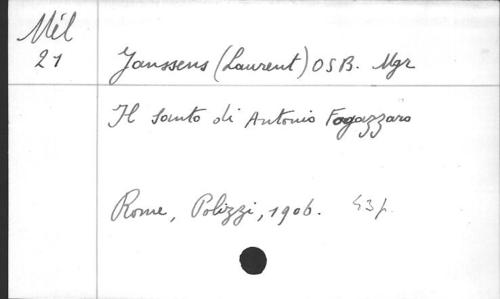 Mél
21
Janssens (Laurent) OSB. Mgr
Il Santo di Antonio Fogazzaro
Rome, Polizzi, 1906. 43 p.